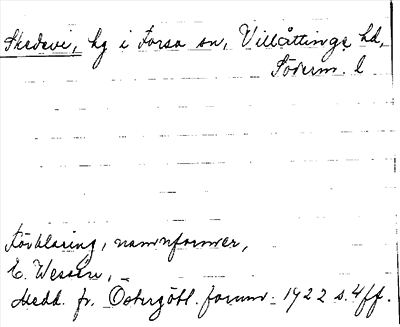 Skedevi, hg i Forsa sn, Villåttinge hd,
Söderm. l
Förklaring, namnformer,
E. Wessén, –
Medd. fr. Östergötl. fornm. 1922 s. 4 ff.